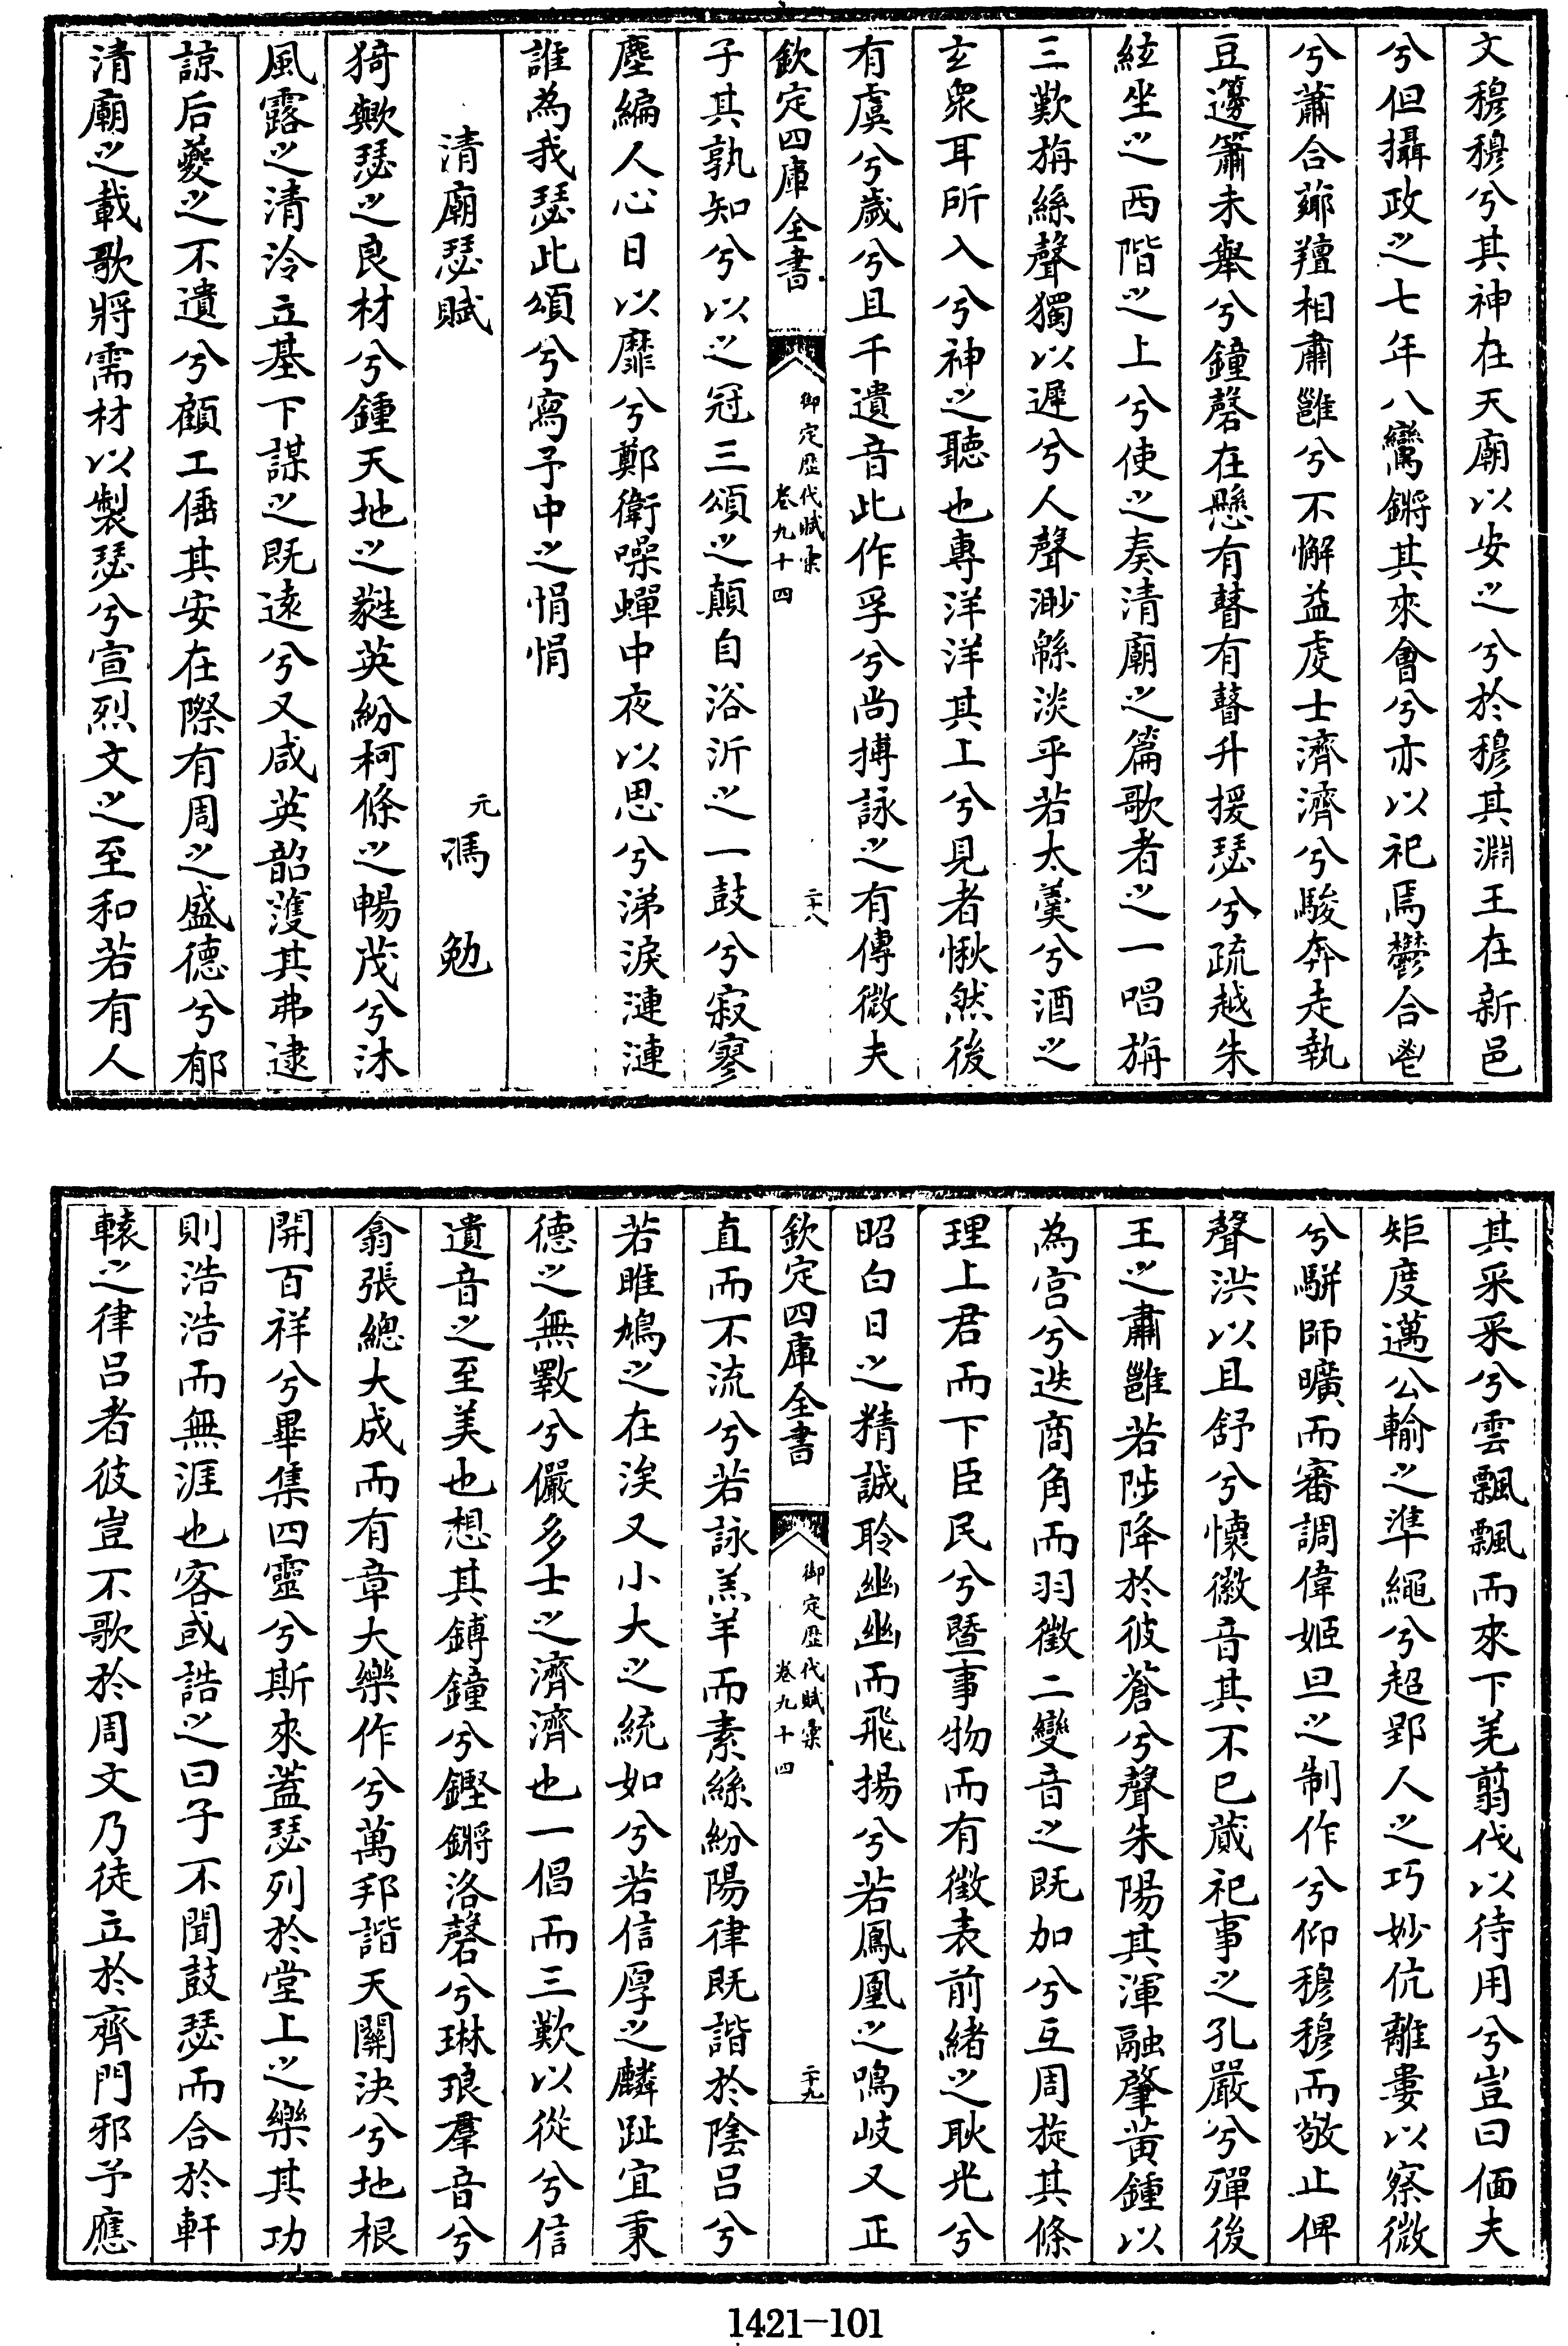 文穆穆兮其神在天廟以安之兮於穆其淵王在新邑
兮但攝政之七年八鸞鏘其來會兮亦以祀焉鬱合鬯
兮蕭合薌羶相肅雝兮不懈益虔士濟濟兮駿奔走執
豆籩簫未舉兮鐘磬在懸有瞽有瞽升援瑟兮疏越朱
絃坐之西階之上兮使之奏清廟之篇歌者之一唱旃
三歎旃絲聲獨以遲兮人聲渺緜淡乎若太羹兮酒之
玄衆耳所入兮神之聽也專洋洋其上兮見者愀然後
有虞兮歲兮且千遺音此作孚兮尚搏詠之有傳微夫
欽定四庫全書
御定歷代賦彙
卷九十四
二十八
子其孰知兮以之冠三頌之顛自浴沂之一鼓兮寂寥
塵編人心日以靡兮鄭衛噪蟬中夜以思兮涕淚漣漣
誰為我瑟此頌兮寫予中之悁悁
清廟瑟賦
元馮勉
猗歟瑟之良材兮鍾天地之蕤英紛柯條之暢茂兮沐
風露之清泠立基下謀之既遠兮又咸英韶濩其弗逮
諒后夔之不遺兮顧工倕其安在際有周之盛德兮郁
清廟之載歌將需材以製瑟兮宣烈文之至和若有人
其采采兮雲飄飄而來下羌翦伐以待用兮豈曰偭夫
矩度邁公輸之準繩兮超郢人之巧妙伉離婁以察微
兮駢師曠而審調偉姬旦之制作兮仰穆穆而敬止俾
聲洪以且舒兮懷徽音其不已蕆祀事之孔嚴兮殫後
王之肅雝若陟降於彼蒼兮聲朱陽其渾融肇黃鍾以
為宮兮迭商角而羽徵二變音之既加兮互周旋其條
理上君而下臣民兮暨事物而有徵表前緒之耿光兮
昭白日之精誠聆幽幽而飛揚兮若鳳凰之鳴岐又正
欽定四庫全書
御定歷代賦彙
卷九十四
二十九
直而不流兮若詠羔羊而素絲紛陽律既諧於陰呂兮
若雎鳩之在涘又小大之統如兮若信厚之麟趾宜秉
德之無斁兮儼多士之濟濟也一倡而三歎以從兮信
遺音之至美也想其鎛鐘兮鏗鏘洛磬兮琳琅羣音兮
翕張總大成而有章大樂作兮萬邦諧天關決兮地根
開百祥兮畢集四靈兮斯來蓋瑟列於堂上之樂其功
則浩浩而無涯也客或誥之曰子不聞鼓瑟而合於軒
轅之律呂者彼豈不歌於周文乃徒立於齊門邪予應
1421-101